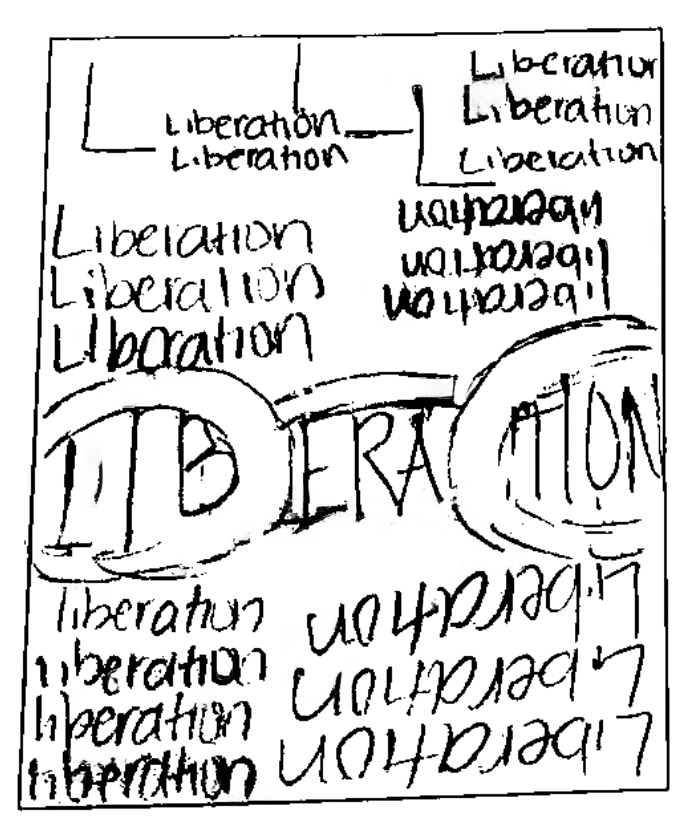 Liberation
Liberation
Liberation
Liberation
Liberation
Liberation
Liberation
Liberation
liberation
liberation
liberation
LIBERATION
liberation
liberation
liberation
liberation
Liberation
Liberation
Liberation